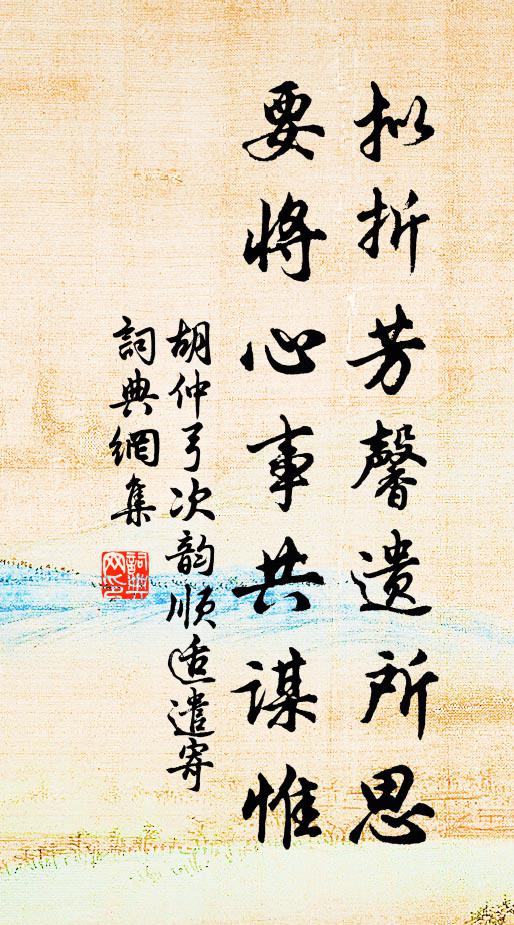 拟折芳馨遗所思
要將心事共謀惟
胡仲弓次韵顺适遣寄
詞典網集